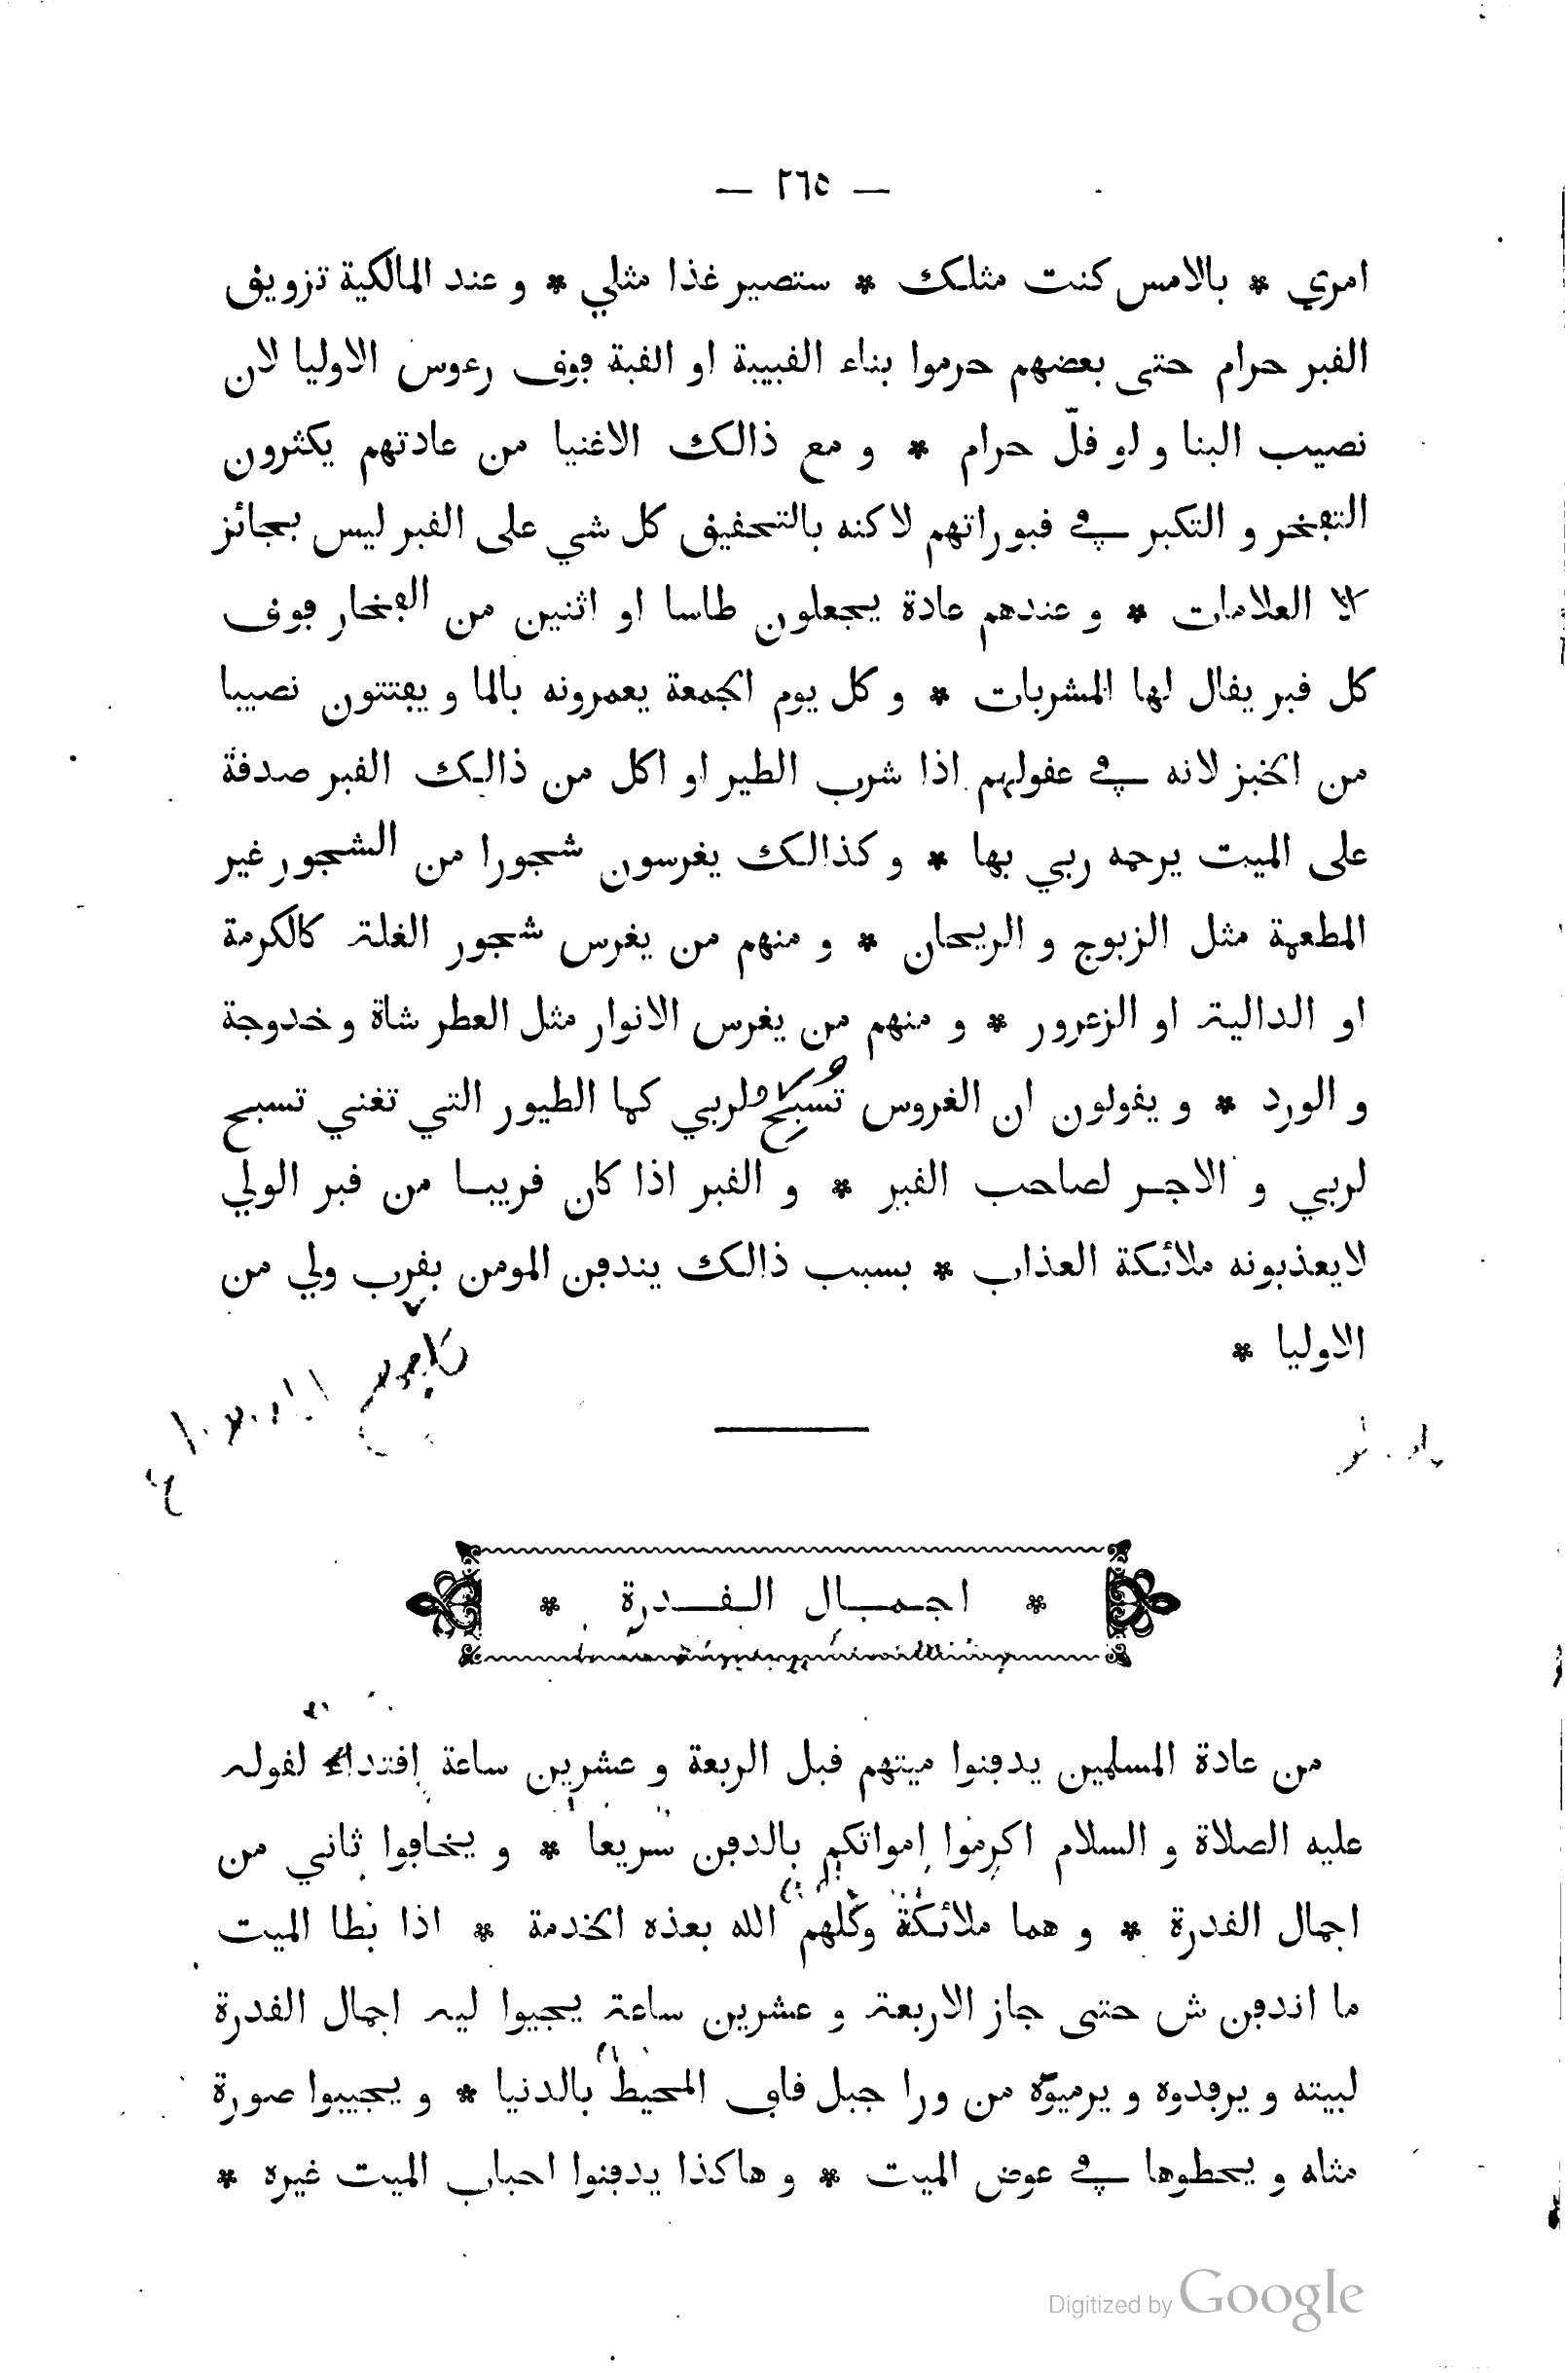 — ٢٦٥ —
امري * بالامس كنت مثلك * ستصير غذا مثلي * و عند المالكية تزويق
القبر حرام حتى بعضهم حرموا بناء القبيبة او القبة فوق رءوس الاوليا لان
نصيب البنا و لو قلّ حرام * و مع ذالك الاغنيا من عادتهم يكثرون
التفخر و التكبر في قبوراتهم لاكنه بالتحقيق كل شي على القبر ليس بجائز
الا العلامات * و عندهم عادة يجعلون طاسا او اثنين من الفخار فوق
كل قبر يقال لها المشربات * و كل يوم الجمعة يعمرونه بالما و يفتتون نصيبا
من الخبز لانه في عقولهم اذا شرب الطير او اكل من ذالك القبر صدقة
على الميت يرحمه ربي بها * و كذالك يغرسون شجورا من الشجور غير
المطعمة مثل الزبوج و الريحان * و منهم من يغرس شجور الغلة كالكرمة
او الدالية او الزعرور * و منهم من يغرس الانوار مثل العطر شاة و خدوجة
و الورد * و يقولون ان الغروس تُسَبِّحُ لربي كما الطيور التي تغني تسبح
لربي و الاجر لصاحب القبر * و القبر اذا كان قريبا من قبر الولي
لايعذبونه ملائكة العذاب * بسبب ذالك يندفن المومن بقرب ولي من
الاوليا *
* اجمال القدرة *
من عادة المسلمين يدفنوا ميتهم قبل الربعة و عشرين ساعة إقتداء لقوله
عليه الصلاة و السلام اكرموا امواتكم بالدفن سريعا * و يخافوا ثاني من
اجمال القدرة * و هما ملائكة وكّلهم الله بعذه الخدمة * اذا بطا الميت
ما اندفن ش حتى جاز الاربعة و عشرين ساعة يجيوا ليه اجمال القدرة
لبيته و يرفدوه و يرميوه من ورا جبل قاف المحيط بالدنيا * و يجيبوا صورة
مثله و يحطوها في عوض الميت * و هاكذا يدفنوا احباب الميت غيره *
Digitized by Google